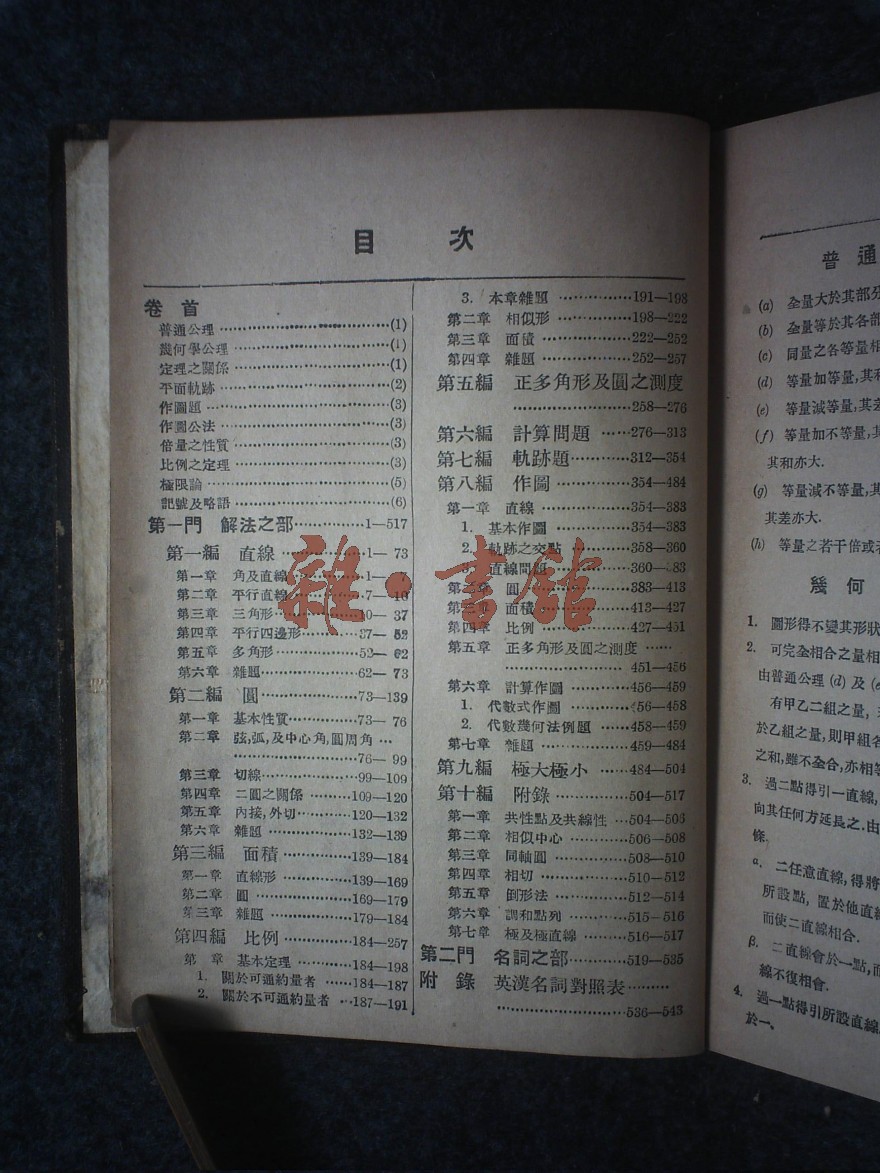 目 次
卷 首
普通公理…………(1)
幾何學公理…………(1)
定理之關係…………(1)
平面軌跡…………(2)
作圖題…………(3)
作圖公法…………(3)
倍量之性質…………(3)
比例之定理…………(3)
極限論…………(5)
記號及略語…………(6)
第一門 解法之部…………1—517
第一編 直線…………1—73
第一章 角及直線…………1—
第二章 平行直線…………7—10
第三章 三角形…………10—37
第四章 平行四邊形…………37—52
第五章 多角形…………52—62
第六章 雜題…………62—73
第二編 圓…………73—139
第一章 基本性質…………73—76
第二章 弦,弧,及中心角,圓周角…
…………76—99
第三章 切線…………99—109
第四章 二圓之關係…………109—120
第五章 內接,外切…………120—132
第六章 雜題…………132—139
第三編 面積…………139—184
第一章 直線形…………139—169
第二章 圓…………169—179
第三章 雜題…………179—184
第四編 比例…………184—257
第 章 基本定理…………184—198
1. 關於可通約量者…184—187
2. 關於不可通約量者…187—191
3. 本章雜題…………191—198
第二章 相似形…………198—222
第三章 面積…………222—252
第四章 雜題…………252—257
第五編 正多角形及圓之測度
…………258—276
第六編 計算問題…276—313
第七編 軌跡題…………312—354
第八編 作圖…………354—484
第一章 直線…………354—383
1. 基本作圖…………354—383
2. 軌跡之交點…………358—360
直線問題…………360—383
第二章 圓…………383—413
第三章 面積…………413—427
第四章 比例…………427—451
第五章 正多角形及圓之測度……
…………451—456
第六章 計算作圖…………456—459
1. 代數式作圖…………456—458
2. 代數幾何法例題……458—459
第七章 雜題…………459—484
第九編 極大極小…484—504
第十編 附錄…………504—517
第一章 共性點及共線性…504—506
第二章 相似中心…………506—508
第三章 同軸圓…………508—510
第四章 相切…………510—512
第五章 倒形法…………512—514
第六章 調和點列…………515—516
第七章 極及極直線……516—517
第二門 名詞之部…………519—535
附 錄 英漢名詞對照表………
…………536—543
雜·書館
普 通
(a) 全量大於其部分
(b) 全量等於其各部
(c) 同量之各等量相
(d) 等量加等量,其和
(e) 等量減等量,其差
(f) 等量加不等量,其
其和亦大.
(g) 等量減不等量,其
其差亦大.
(h) 等量之若干倍或
幾 何
1. 圖形得不變其形狀
2. 可完全相合之量相
由普通公理 (d) 及 (e
有甲乙二組之量,
於乙組之量,則甲組各
之和,雖不全合,亦相等
3. 過二點得引一直線,
向其任何方延長之.由
條.
α. 二任意直線,得將
所設點,置於他直線
而使二直線相合.
β. 二直線會於一點,而
線不復相會.
4. 過一點得引所設直線
於一、